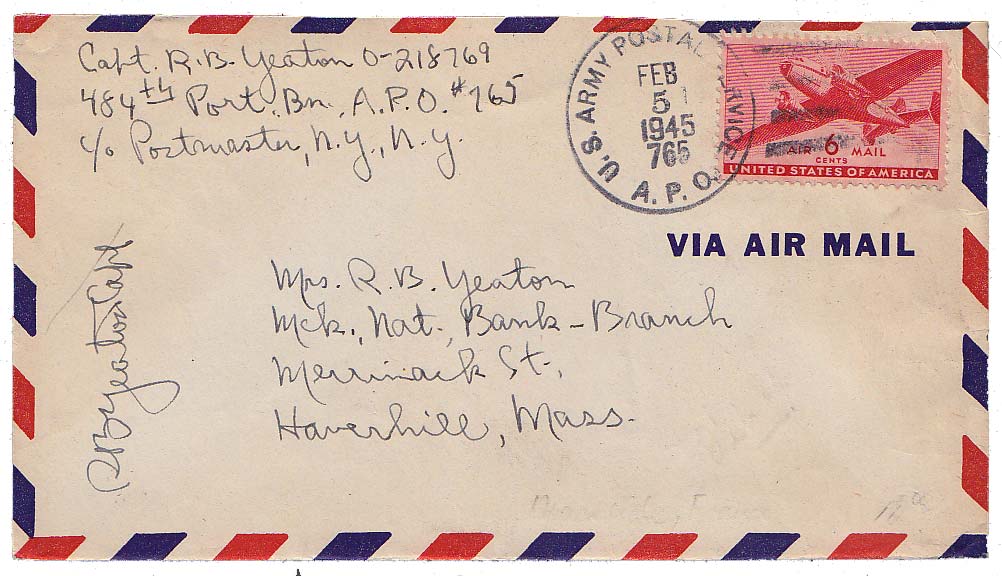 Capt. R.B. Yeaton O-218769
484th Port. Bn., A.P.O. #765
c/o Postmaster, N.Y., N.Y.
U.S. ARMY POSTAL SERVICE
FEB
5
1945
765
A.P.O.
AIR 6 MAIL
CENTS
UNITED STATES OF AMERICA
VIA AIR MAIL
RB Yeaton Capt
Mrs. R.B. Yeaton
Mck. Nat. Bank - Branch
Merrimack St.,
Haverhill, Mass.